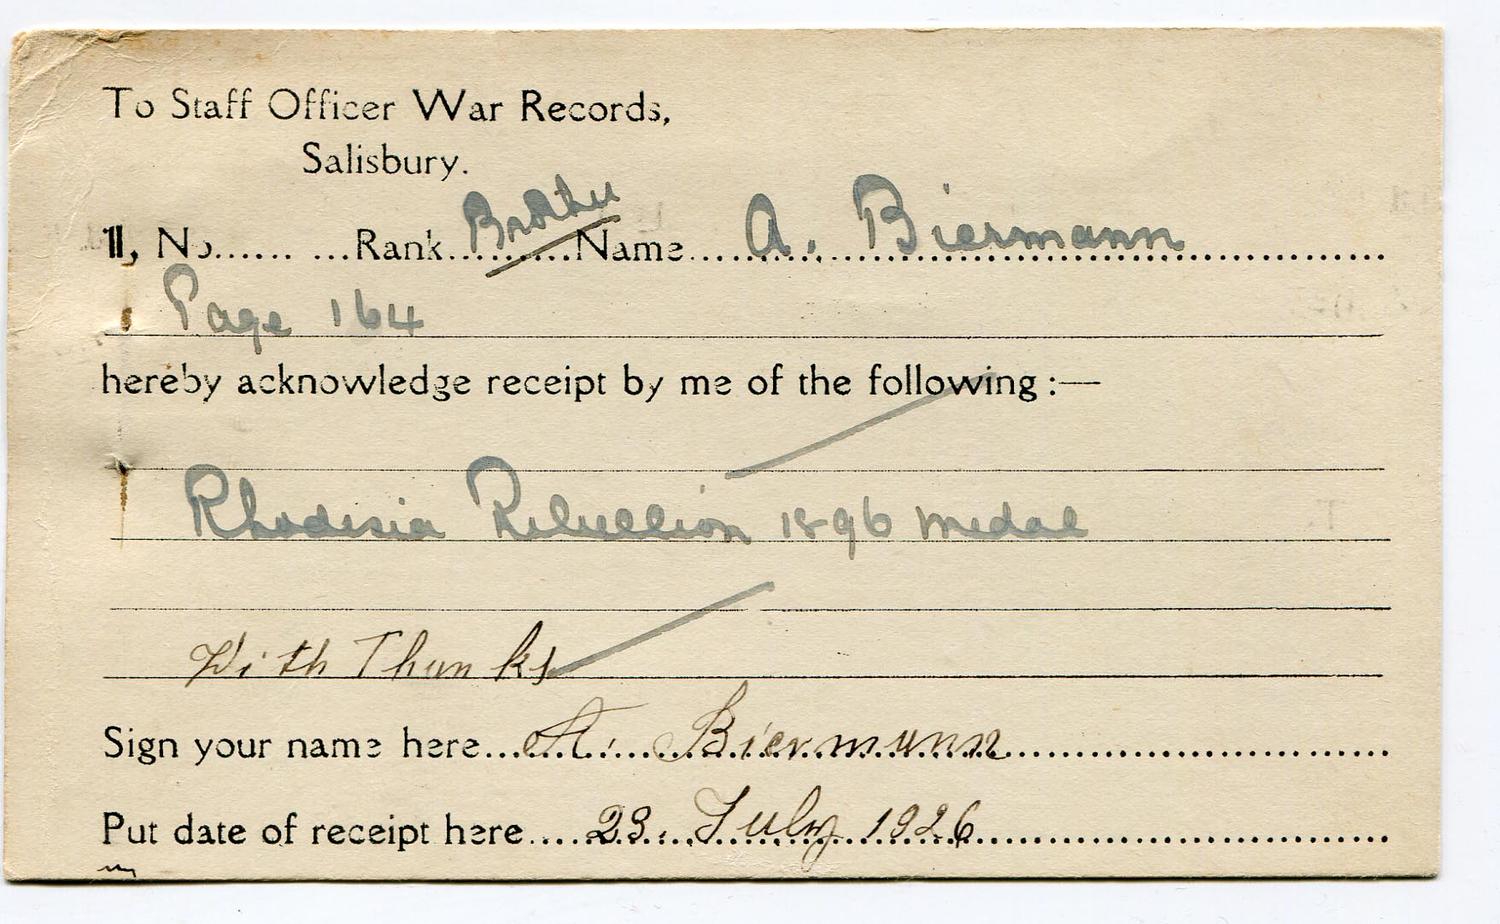 To Staff Officer War Records,
Salisbury.
I, No......... Rank. Brother Name. A. Biermann
Page 164
hereby acknowledge receipt by me of the following :—
Rhodesia Rebellion 1896 medal
With Thanks
Sign your name here... A. Biermann
Put date of receipt here.... 23. July 1926